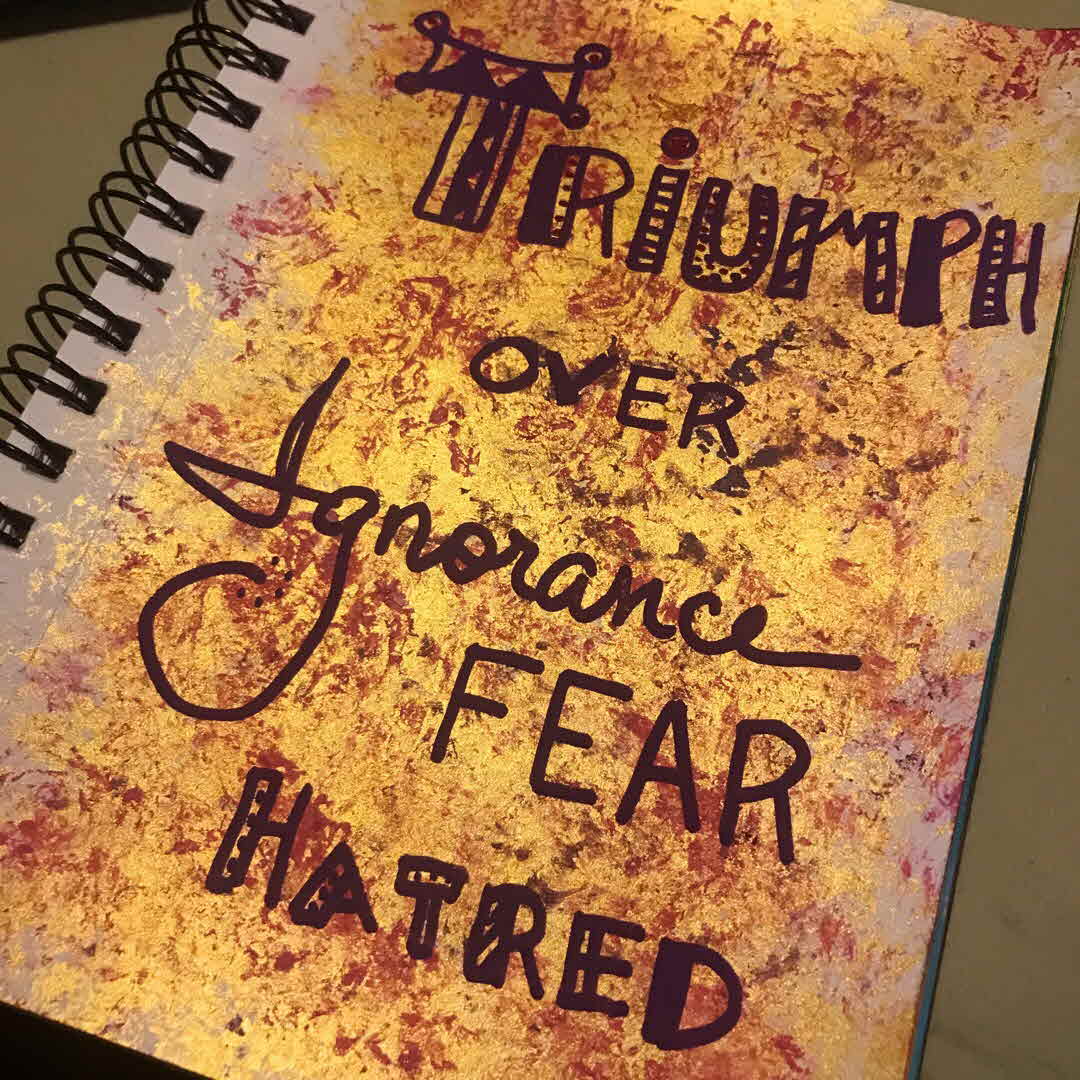 TRiUMPH
OVER
Ignorance
FEAR
HATRED